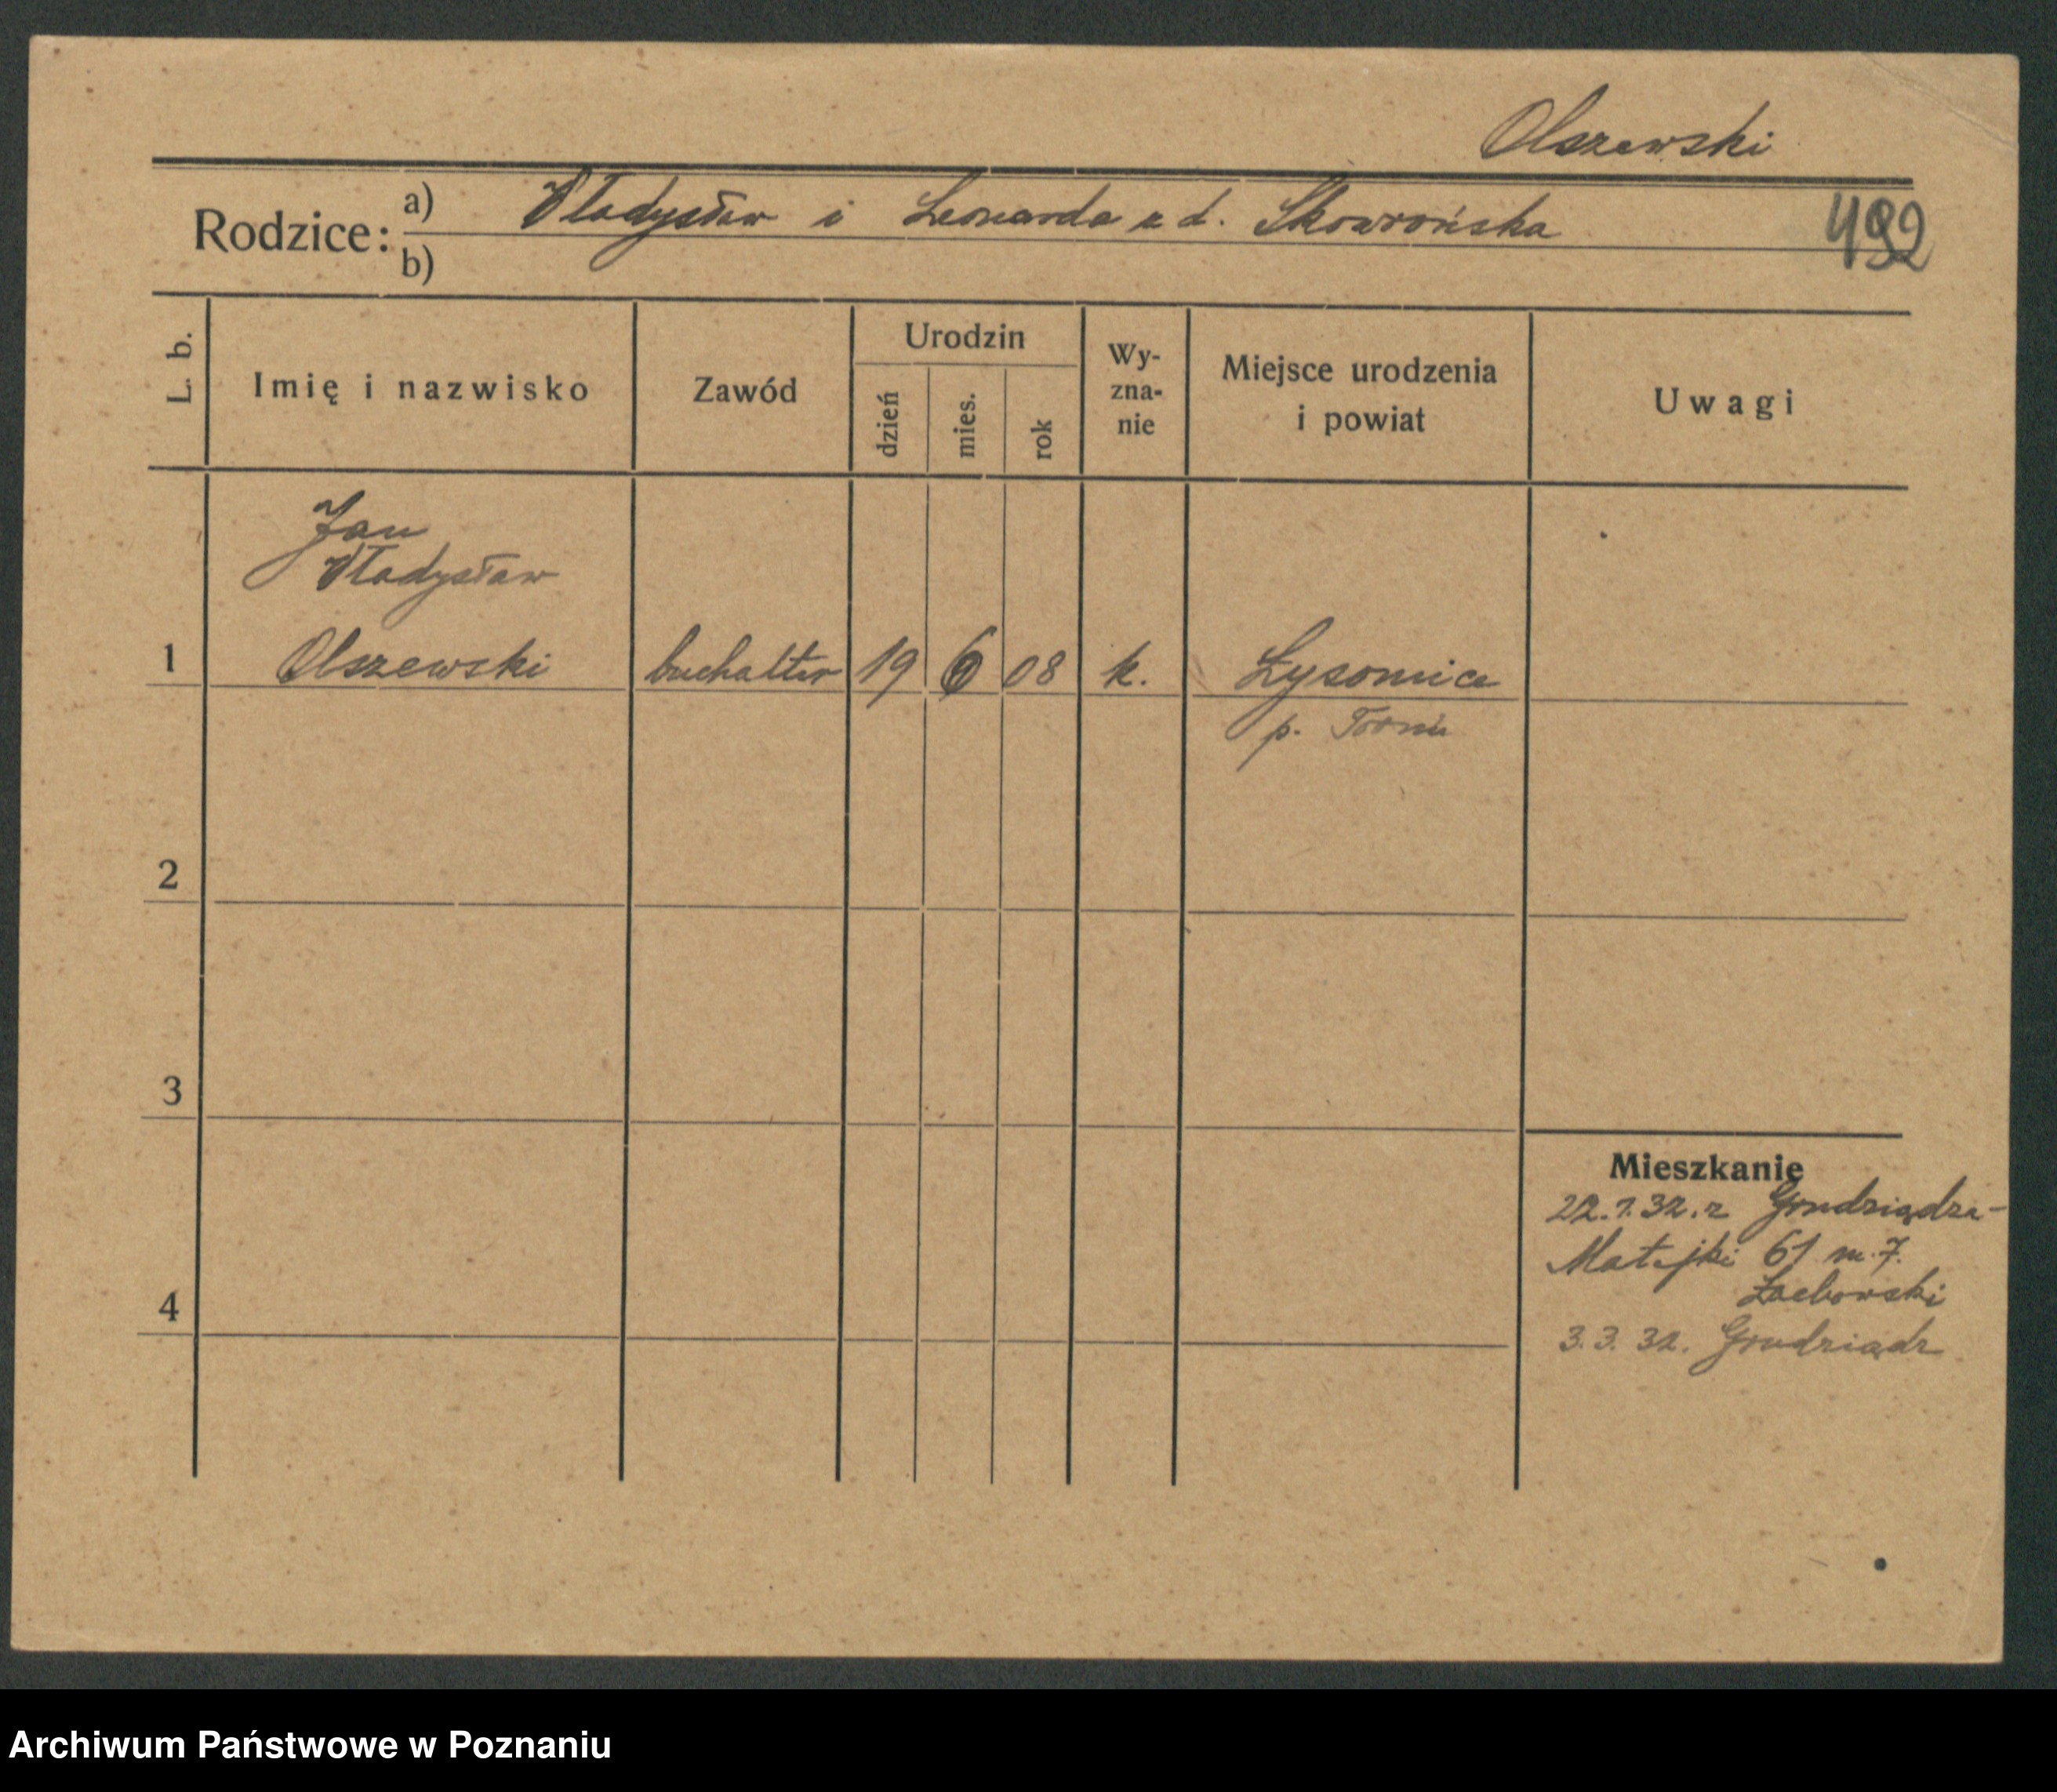 Olszewski
Rodzice: a) Władysław i Leonarda z d. Skowrońska
492
b)
L. b.
Imię i nazwisko
Zawód
Urodzin
dzień
mies.
rok
Wy-
zna-
nie
Miejsce urodzenia
i powiat
Uwagi
Jan
Władysław
1 Olszewski buchalter 19 6 08 k. Łysomice
p. Toruń
2
3
4
Mieszkanie
22.1.32. z Grudziądza-
Matejki 61 m. 7.
3.3.32. Grudziądz
Archiwum Państwowe w Poznaniu